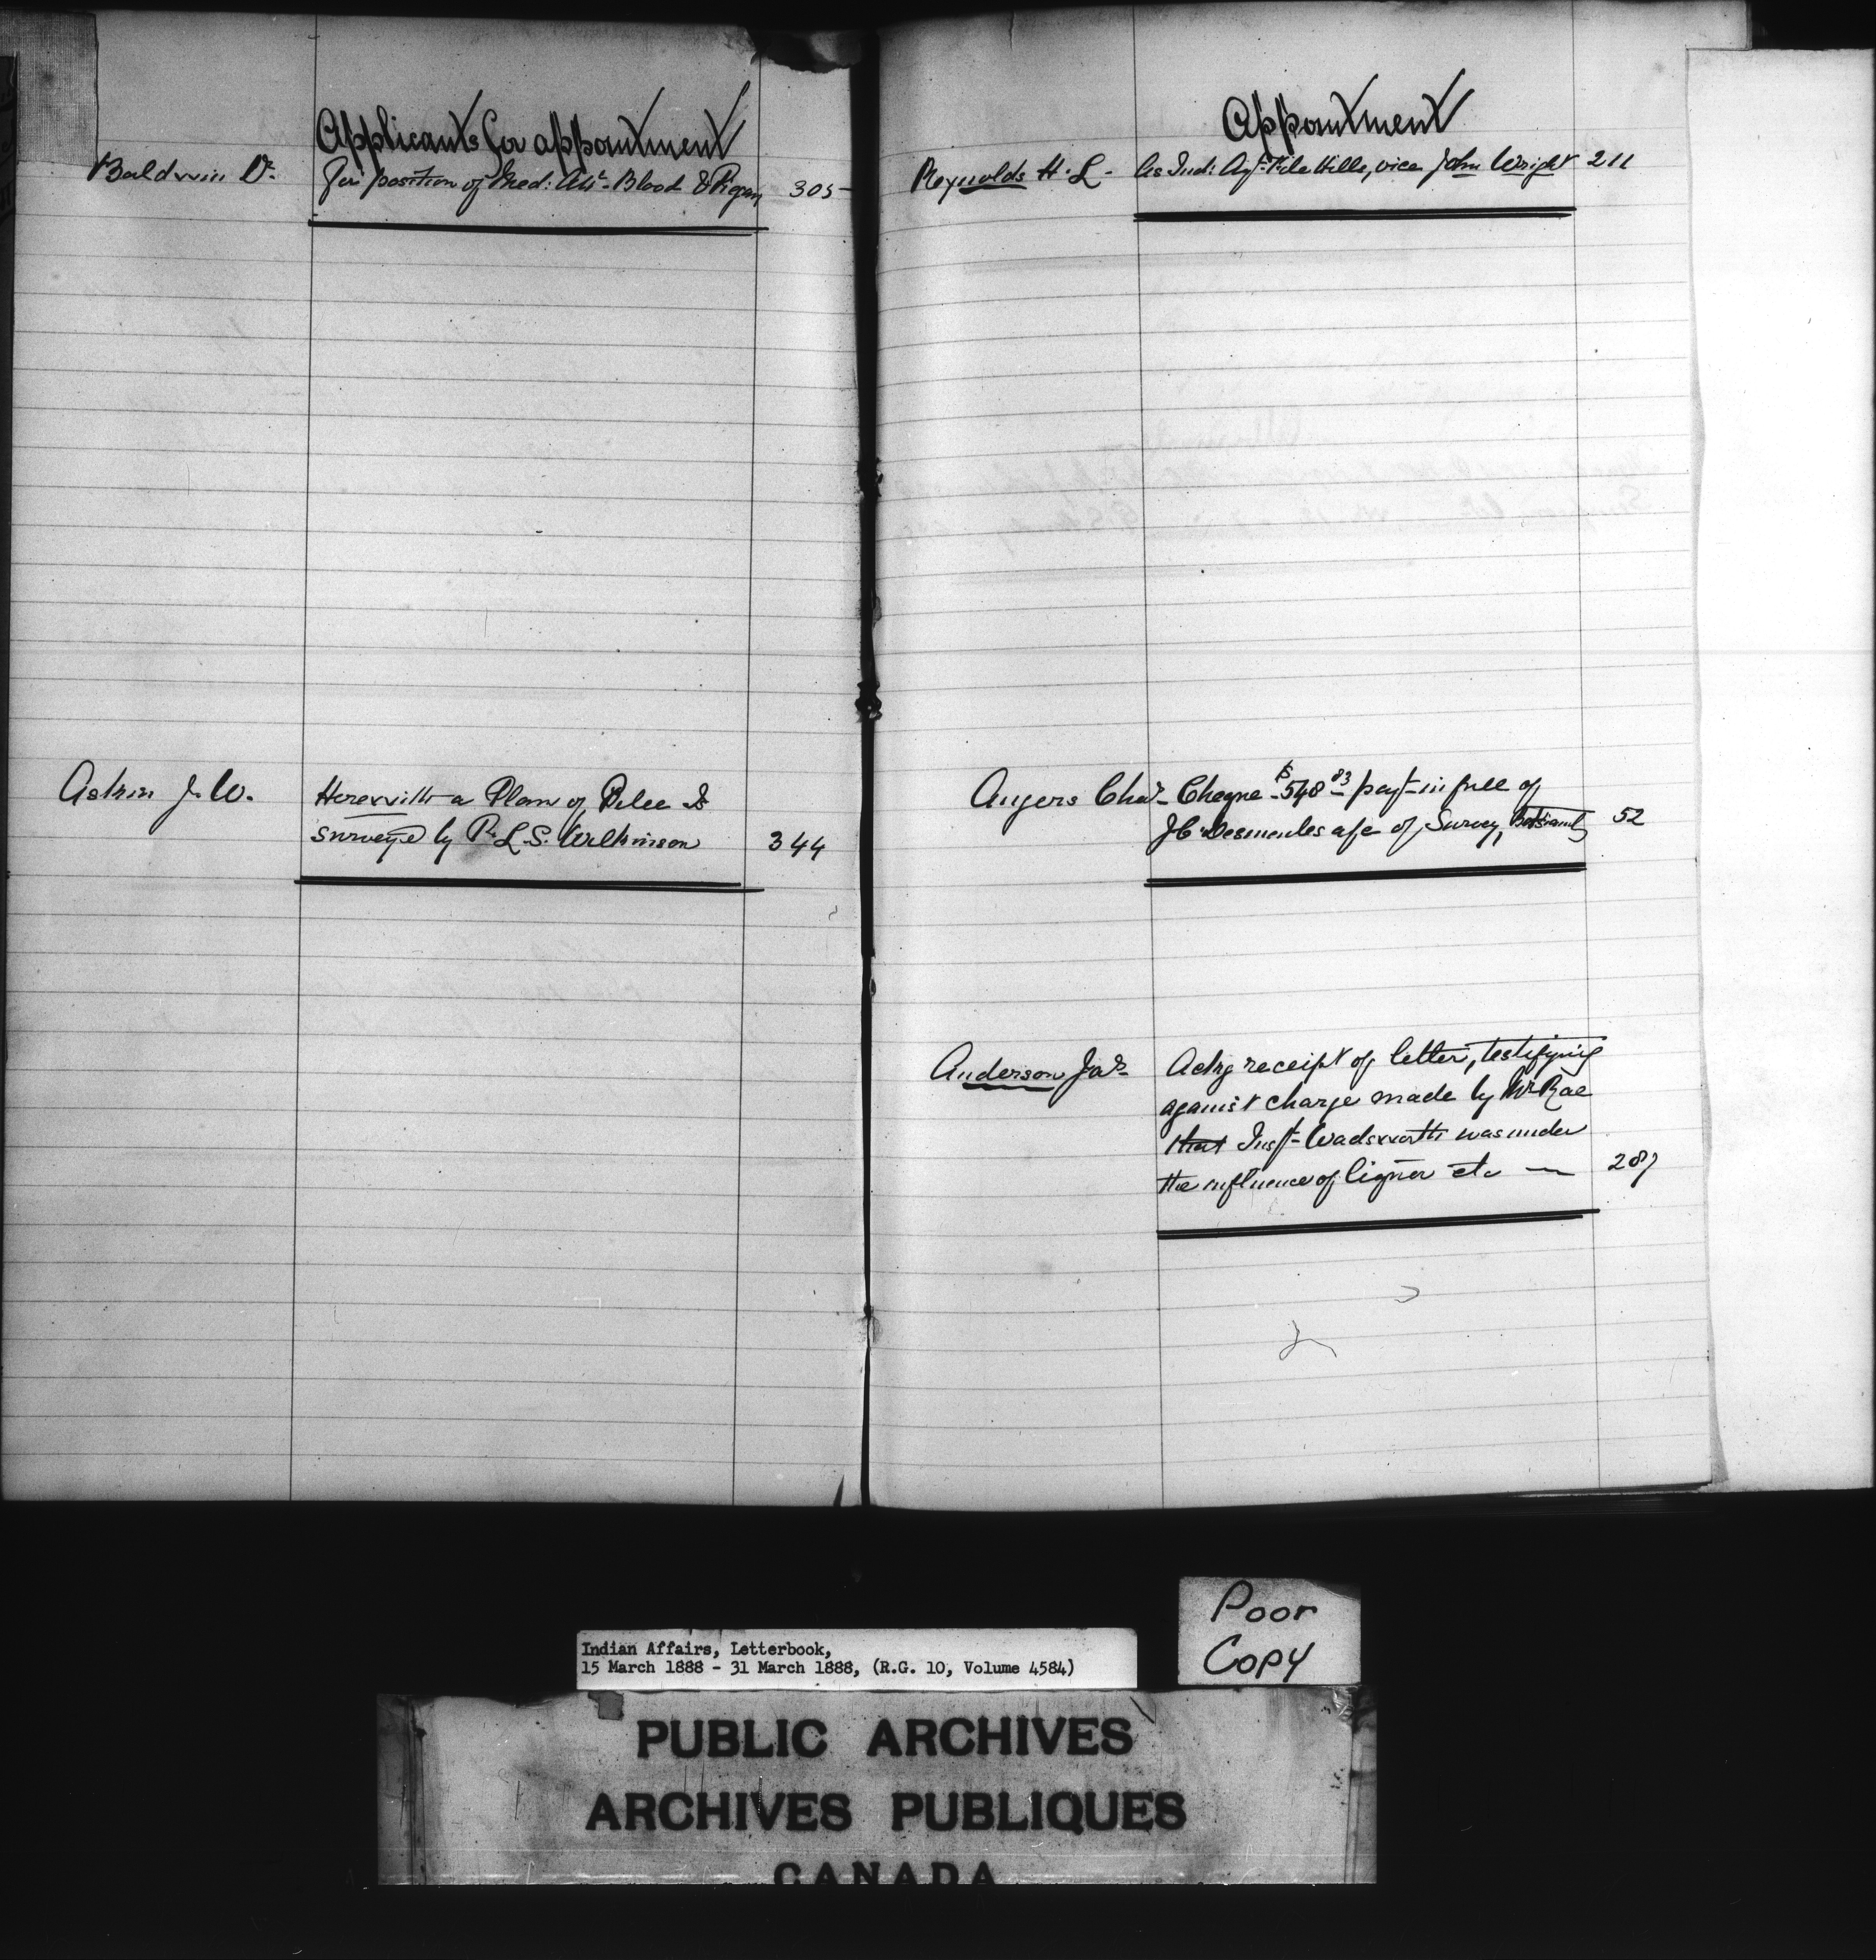 Applicants for appointment
Baldwin Dr. for position of Med: Att - Blood & Piegan 305
Askin J. W. Herewith a Plan of Pelee Is
surveyed by P. L. S. Wilkinson 344
Appointment
Reynolds H. L. As Ind: Agt File Hills, vice John Wright 211
Angers Chas Cheque $548 83 payt in full of
J C Desmeules a/c of Survey, Betsiamits 52
Anderson Jas Ackg receipt of letter, testifying
against charge made by Mr Rae
that Inspt Wadsworth was under
the influence of liquor etc — 287
Poor
Copy
Indian Affairs, Letterbook,
15 March 1888 - 31 March 1888, (R.G. 10, Volume 4584)
PUBLIC ARCHIVES
ARCHIVES PUBLIQUES
CANADA